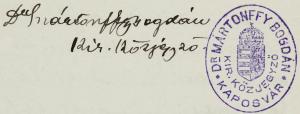 Dr Mártonffy Bogdán
kir. közjegyző
Dr MÁRTONFFY BOGDÁN
KIR. KÖZJEGYZŐ
* KAPOSVÁR *